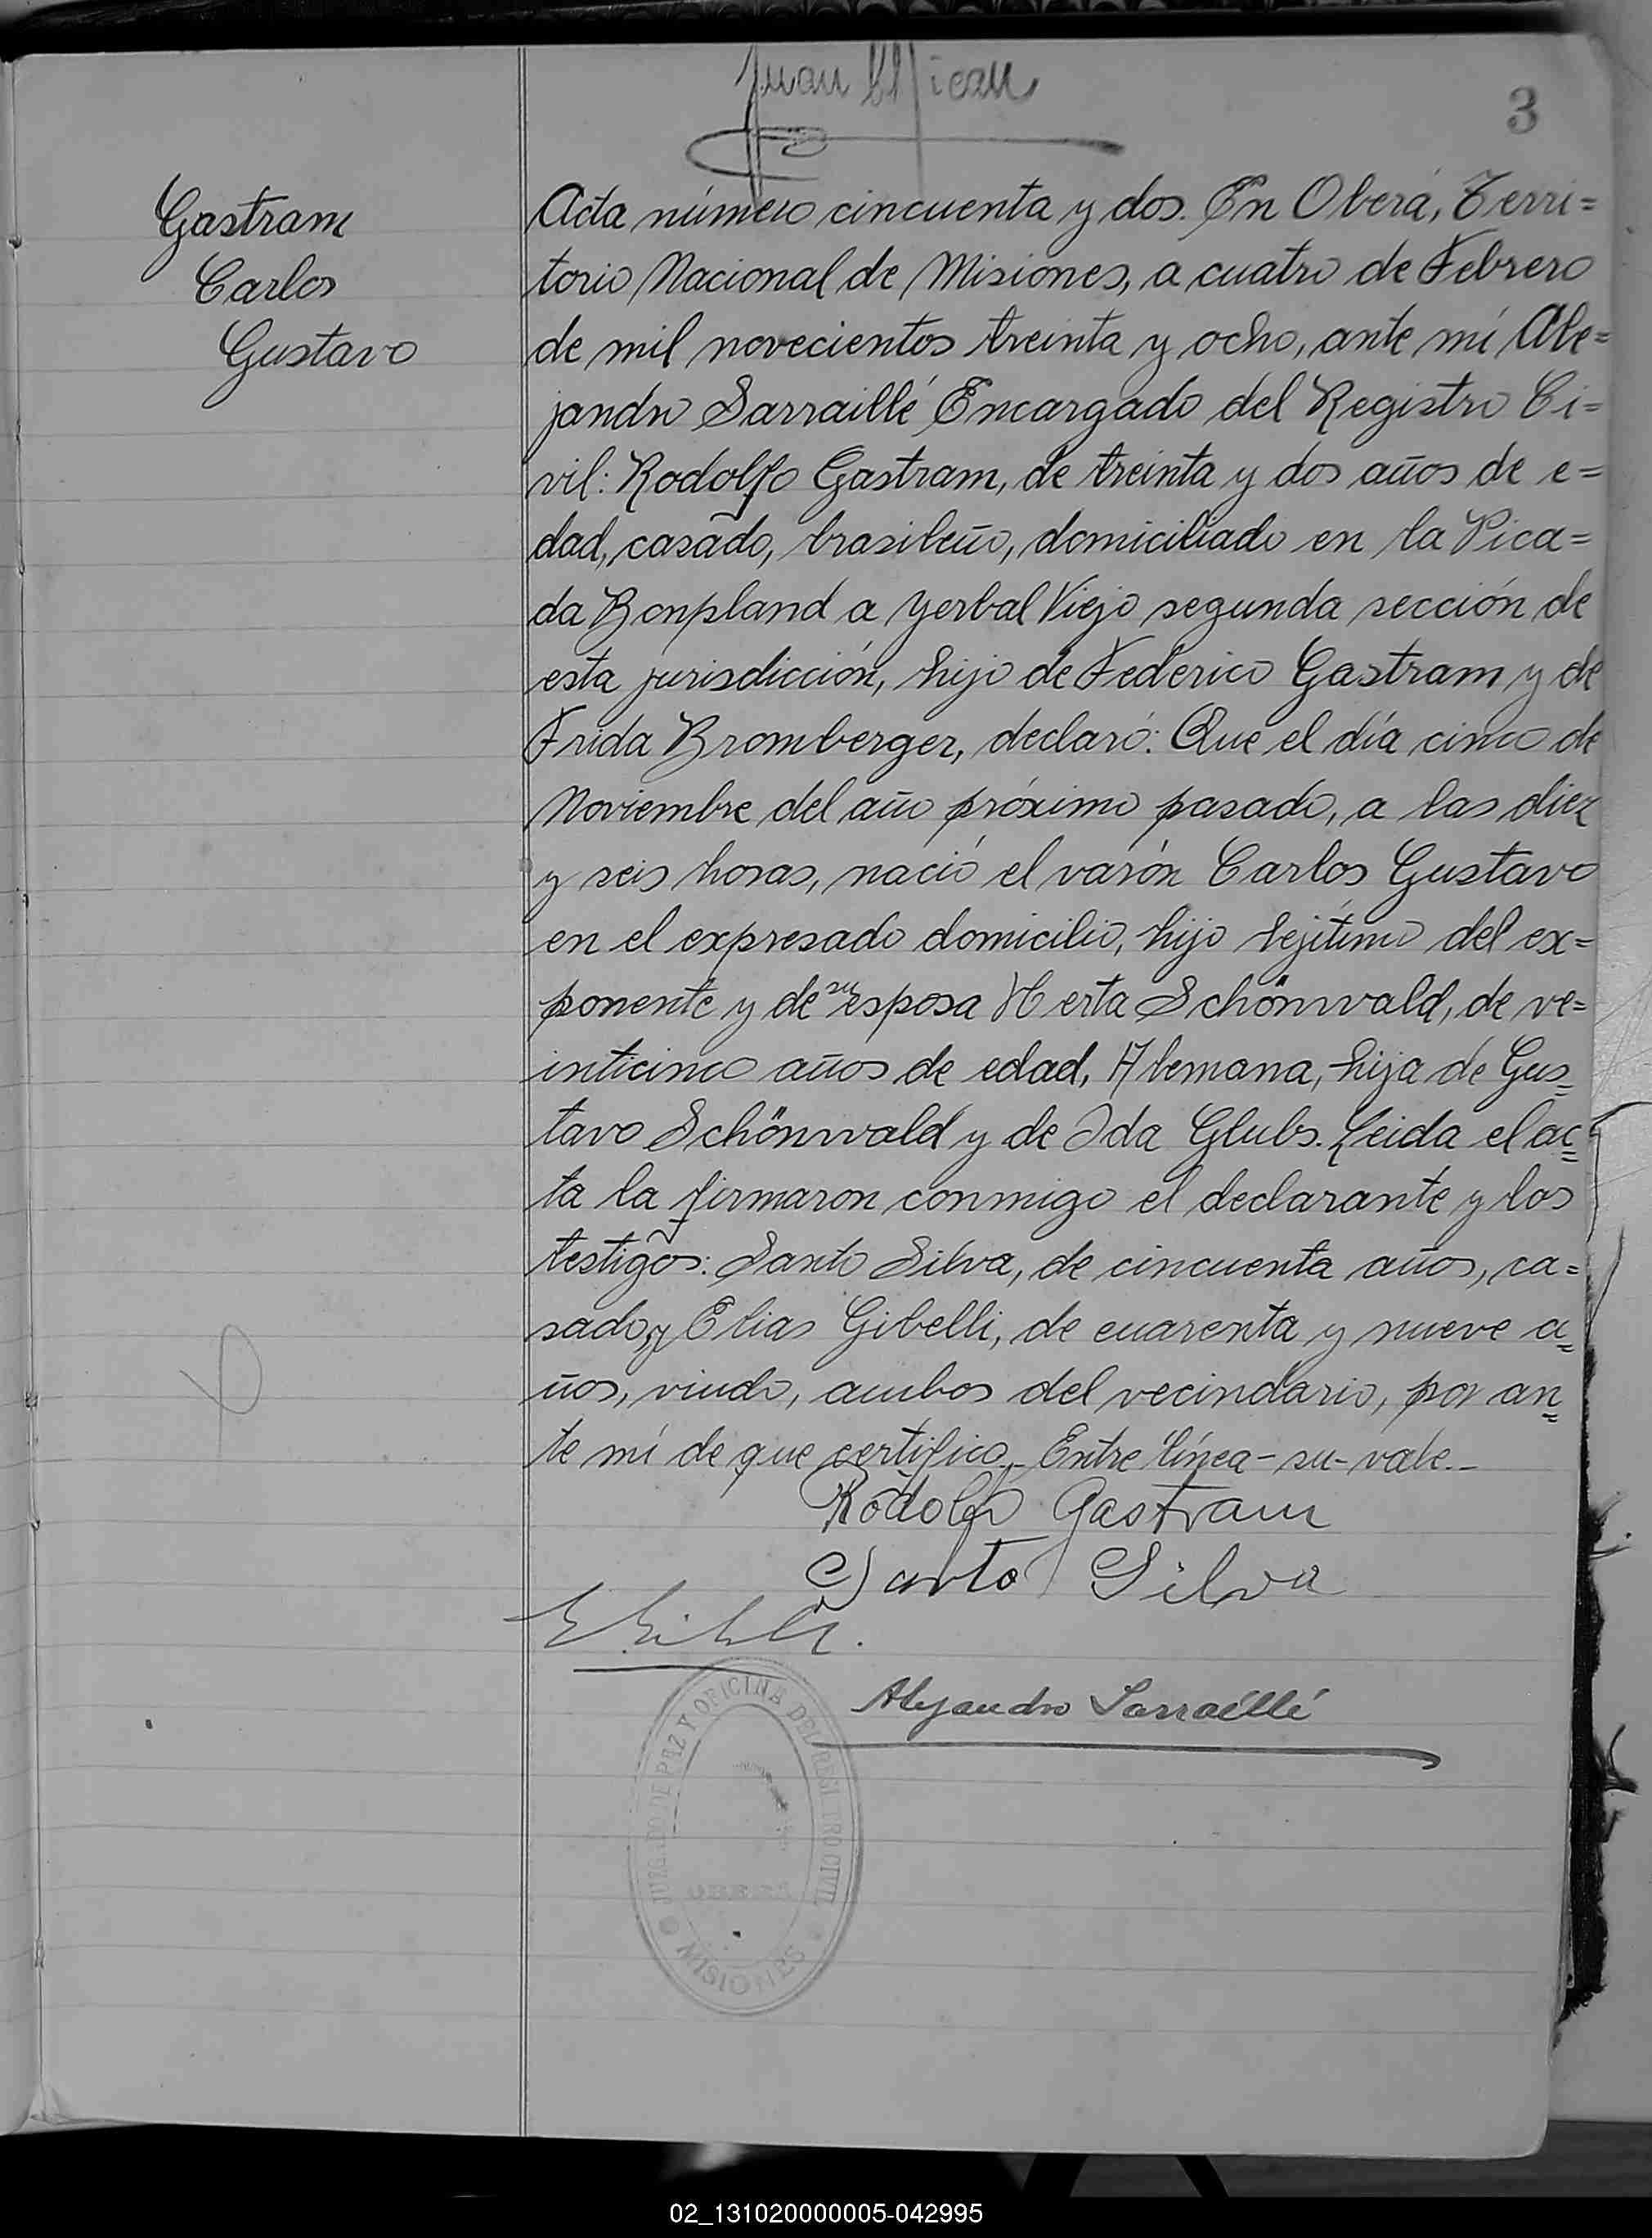 Juan
3
Gastram
Carlos
Gustavo
Acta número cincuenta y dos. En Oberá, Terri=
torio Nacional de Misiones, a cuatro de Febrero
de mil novecientos treinta y ocho, ante mí Ale=
jandro Sarraillé Encargado del Registro Ci=
vil: Rodolfo Gastram, de treinta y dos años de e=
dad, casado, brasileño, domiciliado en la Pica=
da Bonpland a Yerbal Viejo segunda sección de
esta jurisdicción, hijo de Federico Gastram y de
Frida Bromberger, declaró: Que el día cinco de
Noviembre del año próximo pasado, a las diez
y seis horas, nació el varón Carlos Gustavo
en el expresado domicilio, hijo lejítimo del ex=
ponente y de su esposa Herta Schönwald, de ve=
inticinco años de edad, Alemana, hija de Gus=
tavo Schönwald y de Ida Glubs. Leida el ac=
ta la firmaron conmigo el declarante y los
testigos: Santo Silva, de cincuenta años, ca=
sado, y Elias Gibelli, de cuarenta y nueve a=
ños, viudo, ambos del vecindario, por an=
te mí de que certifico.- Entre línea - su - vale.-
Rodolfo Gastram
Santo Silva
Alejandro Sarraillé
JUZGADO DE PAZ Y OFICINA DEL REGISTRO CIVIL
OBERA
MISIONES
02_131020000005-042995